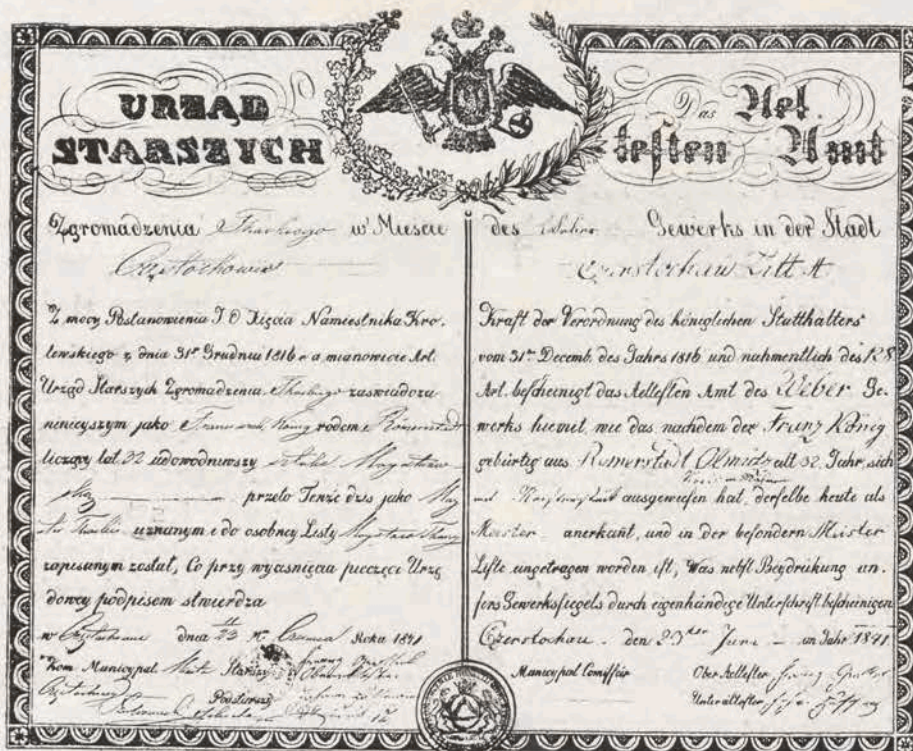 URZĄD
STARSZYCH
Zgromadzenia Tkackiego w Mieście
Częstochowie
Z mocy Postanowienia J O Xięcia Namiestnika Kro-
lewskiego z dnia 31go Grudnia 1816 r a mianowicie Art.
Urząd Starszych Zgromadzenia Tkackiego zaswiadcza
nineieyszym jako König rodem z
liczący lat 32 udowodniwszy sztukę
przeto Tenże dziś jako
uznanym i do osobney Listy
zapisanym został, Co przy wycisnięciu pieczęci Urzę
dowey podpisem stwierdza
w dnia 23 Mca Czerwca Roku 1841
Kom. Municypal Starszy
Podstarszy
Das Ael.
testen Amt
des Weber Gewerks in der Stadt
Czenstochau Litt A
Kraft der Verordnung des königlichen Statthalters
vom 31ten Decemb. des Jahrs 1816 und nahmentlich des 128
Art. bescheinigt das Aeltesten Amt des Weber Ge-
werks hiemit, wie das nachdem der Franz König
gebürtig aus Römerstadt Olmütz alt 32 Jahr, sich
mit ausgewiesen hat, derselbe heute als
Meister anerkant, und in der besondern Meister
Liste ungetragen worden ist, Was nebst Beydrükung un-
sers Gewerkssiegels durch eigenhändige Unterschrift bescheinigen
Czenstochau den 23ter Juni im Jahr 1841
Municypal Comissär Ober Aeltester
Unter ältester